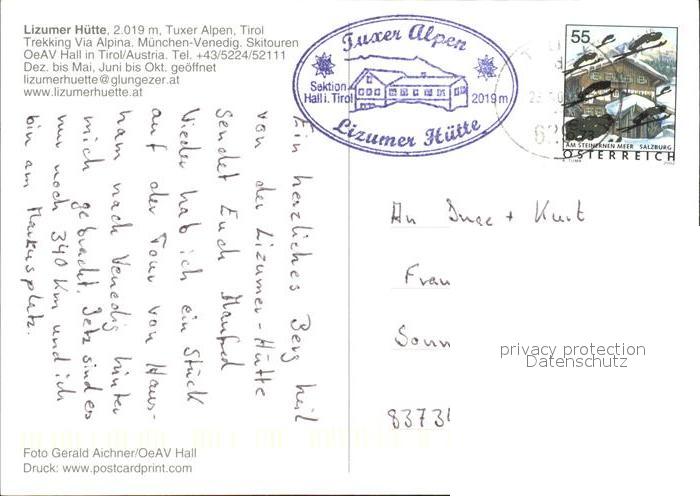 Lizumer Hütte, 2.019 m, Tuxer Alpen, Tirol
Trekking Via Alpina. München-Venedig. Skitouren
OeAV Hall in Tirol/Austria. Tel. +43/5224/52111
Dez. bis Mai, Juni bis Okt. geöffnet
lizumerhuette@glungezer.at
www.lizumerhuette.at
Tuxer Alpen
Sektion
Hall i. Tirol
2019 m
Lizumer Hütte
55
AM STEINERNEN MEER SALZBURG
ÖSTERREICH
Ein herzliches Berg heil
von der Lizumer-Hütte
sendet Euch Manfred
Wieder hab ich ein Stück
auf der Tour von Haus-
ham nach Venedig hinter
mich gebracht. Jetz sind es
nur noch 340 Km und ich
bin am Markusplatz.
An + Kurt
Frau
Sonn
83731
privacy protection
Datenschutz
Foto Gerald Aichner/OeAV Hall
Druck: www.postcardprint.com